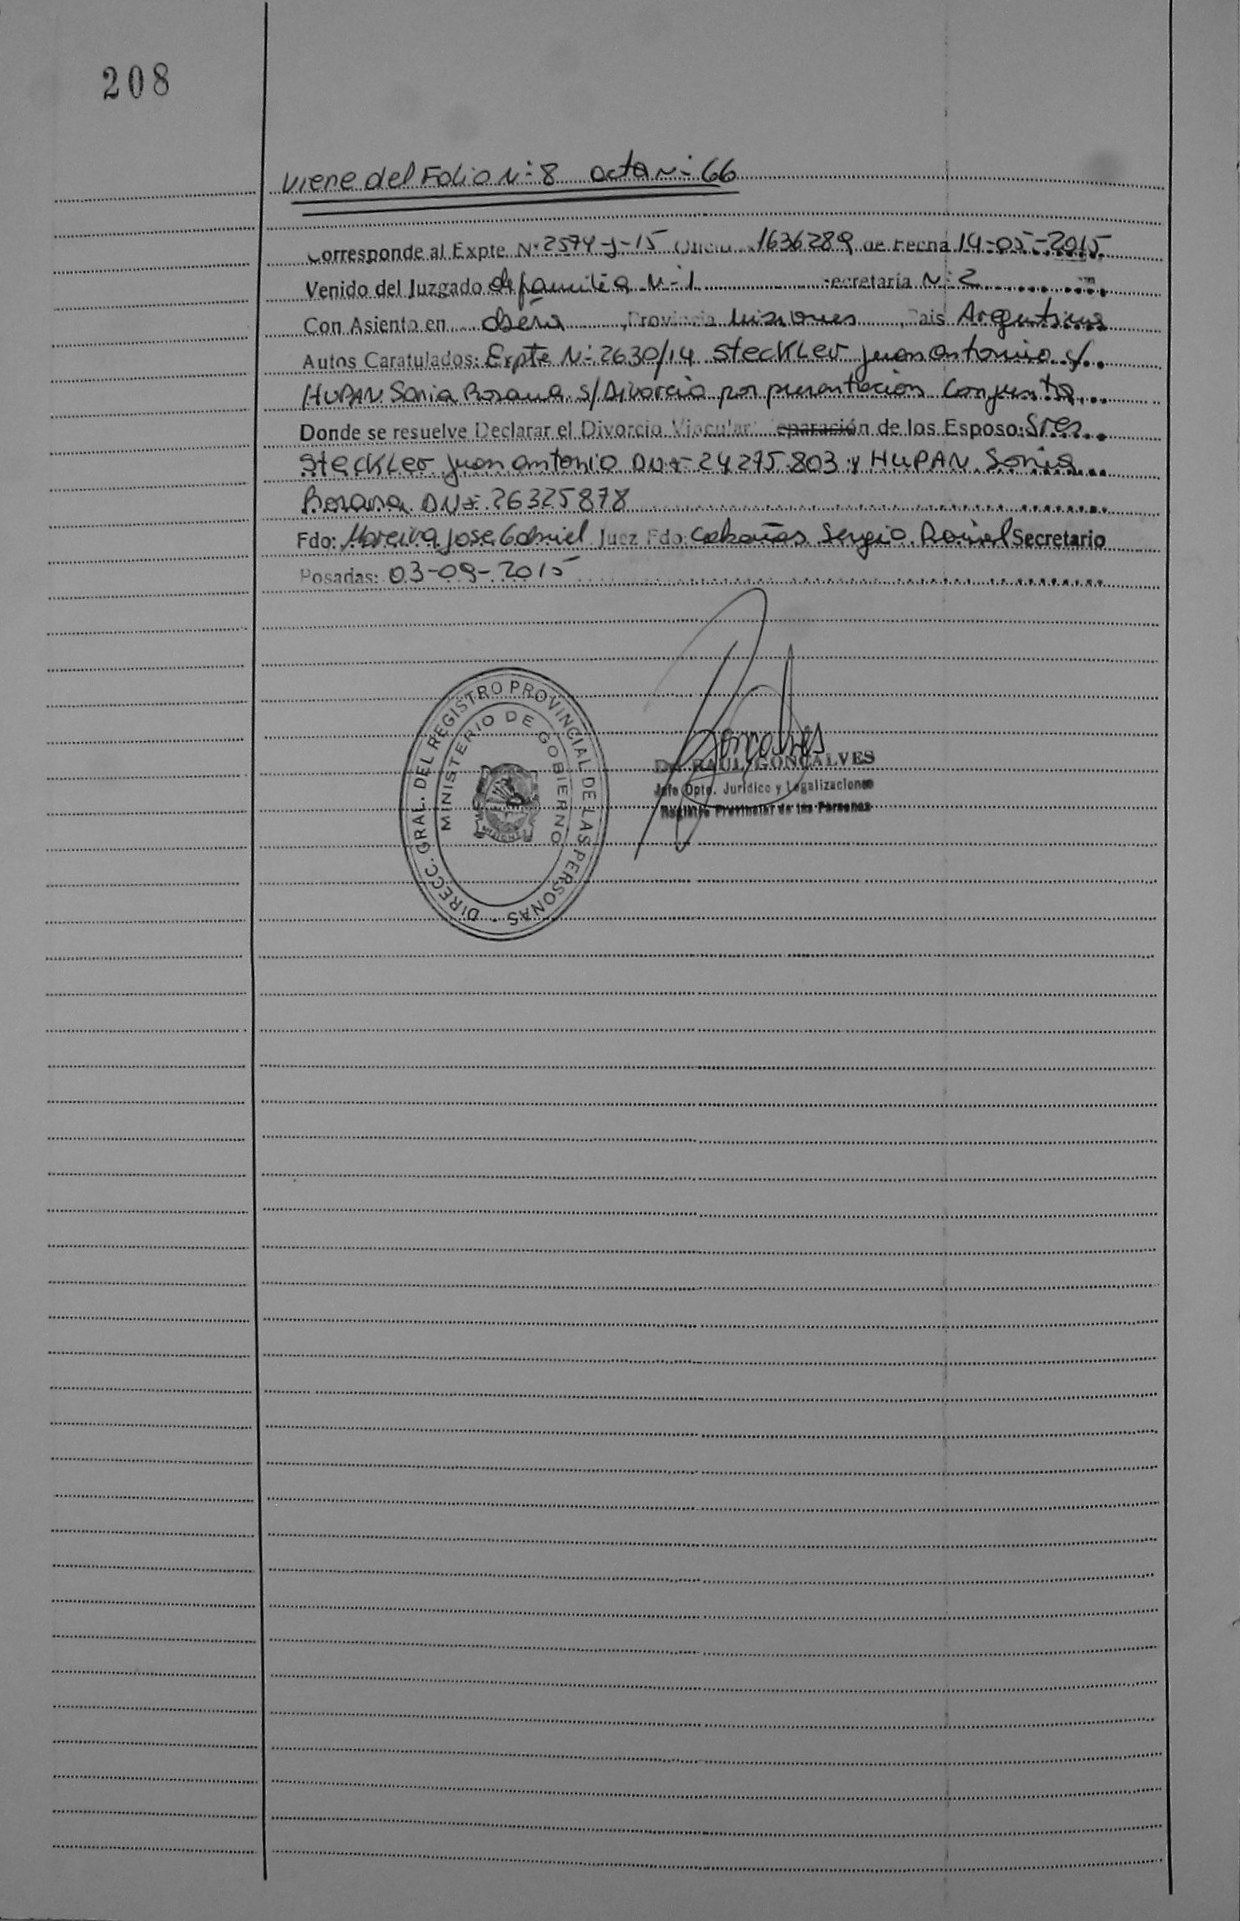 208
Viene del Folio N: 8 acta N: 66
Corresponde al Expte. N° 2574-J-15 Oficio 1636289 de Fecha 14-05-2015
Venido del Juzgado de familia N: 1 Secretaría N: 2
Con Asiento en oberá, Provincia Misiones, Pais Argentina
Autos Caratulados: Expte N: 2630/14 Steckler Juan Antonio y/
HUPAN Sonia Rosana s/Divorcio por presentación Conjunta
Donde se resuelve Declarar el Divorcio Vincular eparación de los Esposo: Sres.
Steckler Juan Antonio DNI 24275.803 y HUPAN Sonia
Rosana DNI 26325878
Fdo: Moreira Jose Gabriel Juez Fdo: Cabañas Sergio Daniel Secretario
Posadas: 03-09-2015
DIRECC. GRAL. DEL REGISTRO PROVINCIAL DE LAS PERSONAS
MINISTERIO DE GOBIERNO
Goncalves
Dr. RAUL GONCALVES
Jefe Dpto. Jurídico y Legalizaciones
Registro Provincial de las Personas